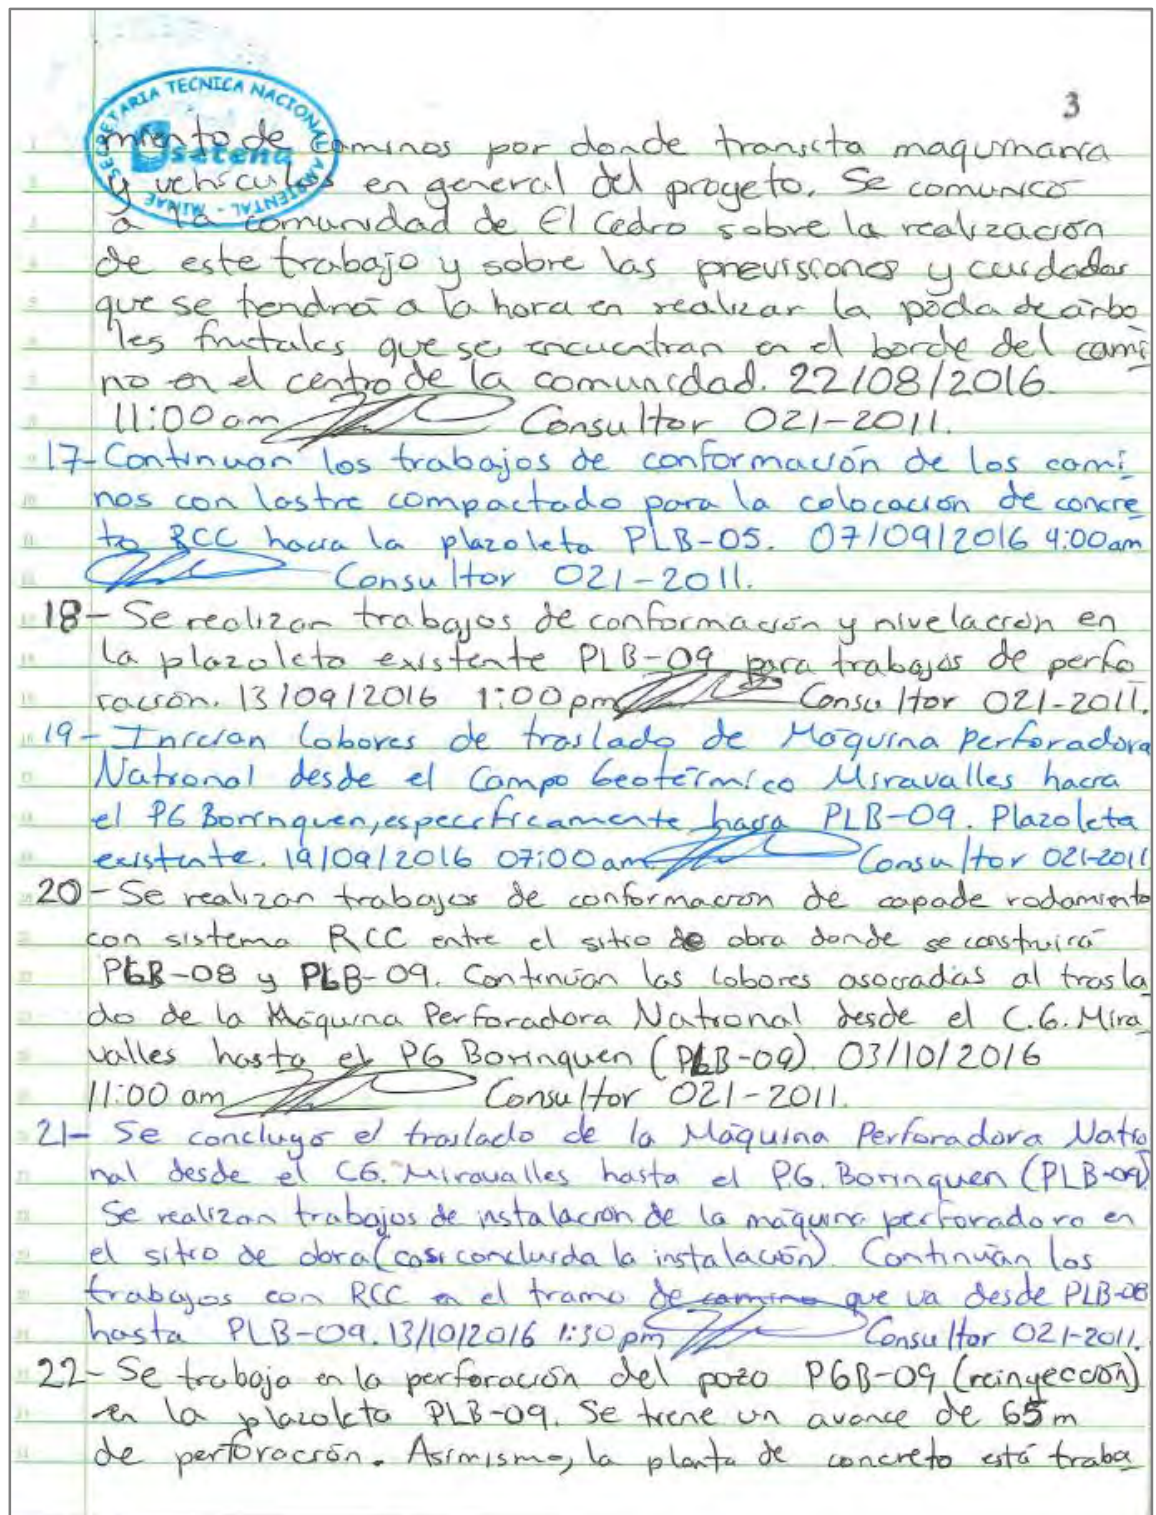 SECRETARIA TECNICA NACIONAL AMBIENTAL - MINAE
setena
3
miento de caminos por donde transita maquinaria
y vehículos en general del proyeto. Se comunicó
a la comunidad de El Cedro sobre la realización
de este trabajo y sobre las previsiones y cuidados
que se tendrá a la hora en realizar la poda de árbo
les frutales que se encuentran en el borde del cami
no en el centro de la comunidad. 22/08/2016.
11:00 am Consultor 021-2011.
17- Continuan los trabajos de conformación de los cami
nos con lastre compactado para la colocación de concre
to RCC hacia la plazoleta PLB-05. 07/09/2016 9:00am
Consultor 021-2011.
18- Se realizan trabajos de conformación y nivelación en
la plazoleta existente PLB-09 para trabajos de perfo
ración. 13/09/2016 1:00 pm Consultor 021-2011.
19- Inician labores de traslado de Máquina Perforadora
National desde el Campo Geotérmico Miravalles hacia
el PG Borinquen, específicamente hacia PLB-09. Plazoleta
existente. 19/09/2016 07:00 am Consultor 021-2011
20- Se realizan trabajos de conformación de capa de rodamiento
con sistema RCC entre el sitio de obra donde se construirá
PLB-08 y PLB-09. Continúan las labores asociadas al trasla
do de la Máquina Perforadora National desde el C.G. Mira
valles hasta el PG Borinquen (PLB-09). 03/10/2016
11:00 am Consultor 021-2011.
21- Se concluyó el traslado de la Máquina Perforadora Natio
nal desde el CG. Miravalles hasta el P.G. Borinquen (PLB-09)
Se realizan trabajos de instalación de la máquina perforadora en
el sitio de obra (casi concluida la instalación). Continúan los
trabajos con RCC en el tramo de camino que va desde PLB-08
hasta PLB-09. 13/10/2016 1:30 pm Consultor 021-2011.
22- Se trabaja en la perforación del pozo PGB-09 (reinyección)
en la plazoleta PLB-09. Se tiene un avance de 65 m
de perforación. Asimismo, la planta de concreto está traba